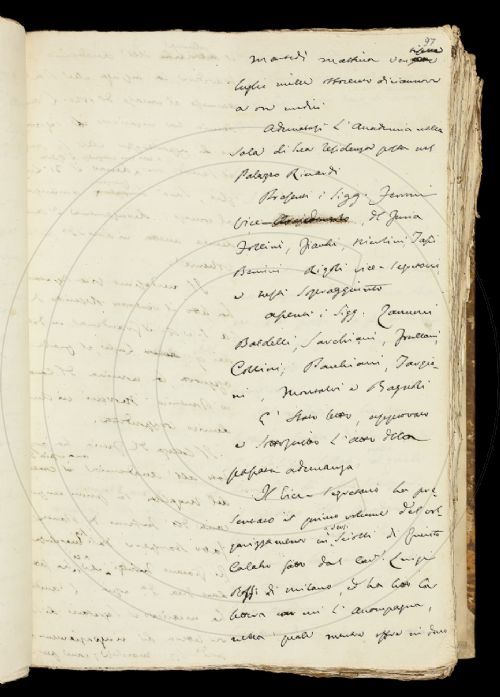 97
Martedì mattina
luglio mille ottocento diciannove
a ore undici
Adunatasi l'Accademia nella
Sala di sua residenza posta nel
Palazzo Ricardi
Presenti i Sigg. Ferroni
Vice-, del Furia
Follini, Fiacchi, Niccolini
Bencini Rigoli vice-Segretario
e sopraggiunto
assenti i Sigg. Zannoni
Baldelli, Sarchiani, Frullani,
Collini, Pauchiani, Targio-
ni, Montalvi e Bagnoli
È stato letto, approvato
e l'atto della
passata adunanza
Il Vice-Segretario ha pre-
sentato il primo volume del vol-
garizzamento in versi sciolti di Quinto
Calabro fatto dal Cav.
Rossi di Milano, ed ha letto la
lettera con cui l'accompagna,
nella quale mentre offre in dono